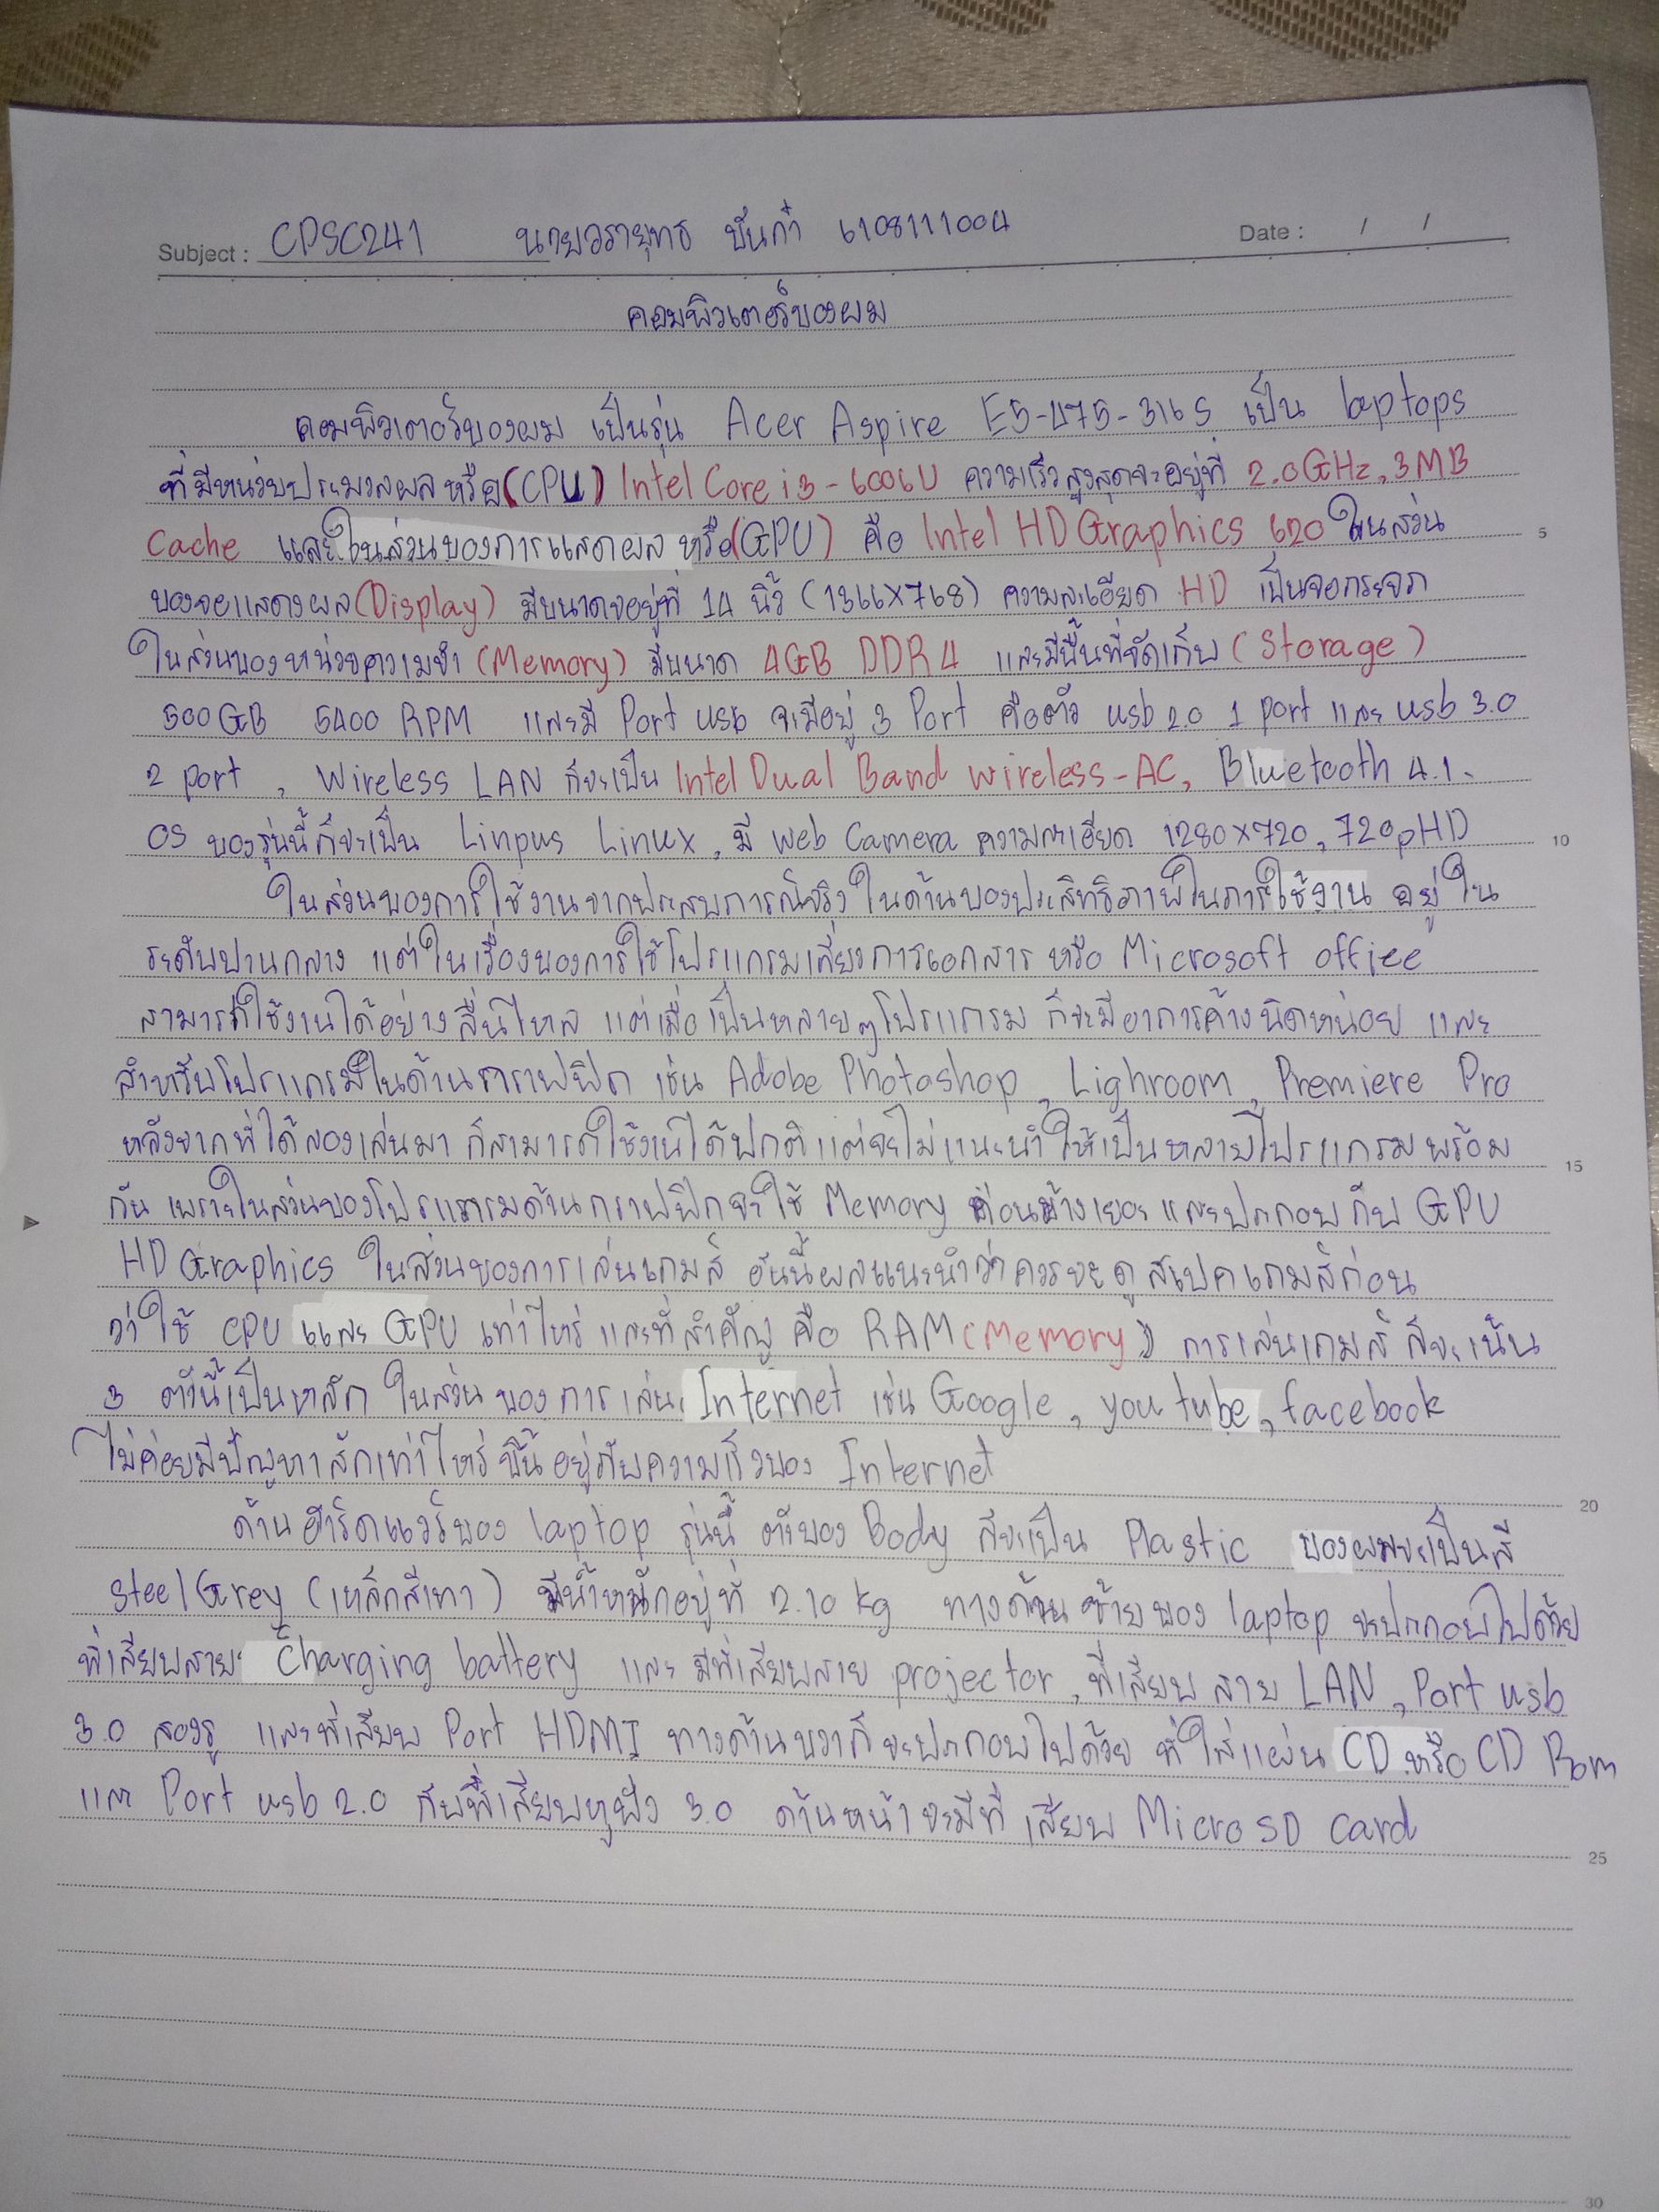 Subject : CPSC241 นายวรายุทธ ปันก๋า 6108111004 Date : / /
คอมพิวเตอร์ของผม
คอมพิวเตอร์ของผม เป็นรุ่น Acer Aspire E5-475-316S เป็น laptops
ที่มีหน่วยประมวลผล หรือ (CPU) Intel Core i3-6006U ความเร็วสูงสุดจะอยู่ที่ 2.0GHz, 3MB
Cache และในส่วนของการแสดงผล หรือ (GPU) คือ Intel HD Graphics 620 ในส่วน 5
ของจอแสดงผล (Display) มีขนาดจออยู่ที่ 14 นิ้ว (1366x768) ความละเอียด HD เป็นจอกระจก
ในส่วนของหน่วยความจำ (Memory) มีขนาด 4GB DDR4 และมีพื้นที่จัดเก็บ (Storage)
500GB 5400 RPM และมี Port usb จะมีอยู่ 3 Port คือตัว usb 2.0 1 port และ usb 3.0
2 port , Wireless LAN ก็จะเป็น Intel Dual Band wireless-AC, Bluetooth 4.1.
OS ของรุ่นนี้ก็จะเป็น Linpus Linux, มี web Camera ความละเอียด 1280x720, 720pHD 10
ในส่วนของการใช้งานจากประสบการณ์จริง ในด้านของประสิทธิภาพในการใช้งาน อยู่ใน
ระดับปานกลาง แต่ในเรื่องของการใช้โปรแกรมเกี่ยวการเอกสาร หรือ Microsoft office
สามารถใช้งานได้อย่างลื่นไหล แต่เมื่อเปิดหลายๆโปรแกรม ก็จะมีอาการค้างนิดหน่อย และ
สำหรับโปรแกรมในด้านกราฟฟิก เช่น Adobe Photoshop, Lighroom, Premiere Pro
หลังจากที่ได้ลองเล่นมา ก็สามารถใช้งานได้ปกติ แต่จะไม่แนะนำให้เปิดหลายโปรแกรมพร้อม 15
กัน เพราะในส่วนของโปรแกรมด้านกราฟฟิกจะใช้ Memory ค่อนข้างเยอะ และประกอบกับ GPU
HD Graphics ในส่วนของการเล่นเกมส์ อันนี้ผมแนะนำว่าควรจะดูสเปคเกมส์ก่อน
ว่าใช้ CPU และ GPU เท่าไหร่ และที่สำคัญ คือ RAM (Memory) การเล่นเกมส์ก็จะเน้น
3 ตัวนี้เป็นหลัก ในส่วนของการเล่น Internet เช่น Google, youtube, facebook
ไม่ค่อยมีปัญหาสักเท่าไหร่ ขึ้นอยู่กับความเร็วของ Internet
20
ด้านฮาร์ดแวร์ของ laptop รุ่นนี้ ตัวของ Body ก็จะเป็น Plastic ของผมจะเป็นสี
Steel Grey (เหล็กสีเทา) มีน้ำหนักอยู่ที่ 2.10 kg ทางด้านซ้ายของ laptop จะประกอบไปด้วย
ที่เสียบสาย Charging battery และ มีที่เสียบสาย projector, ที่เสียบสาย LAN, Port usb
3.0 สองรู และที่เสียบ Port HDMI ทางด้านขวาก็จะประกอบไปด้วย ที่ใส่แผ่น CD หรือ CD Rom
และ Port usb 2.0 กับที่เสียบหูฟัง 3.0 ด้านหน้าจะมีที่เสียบ Micro SD card
25
30